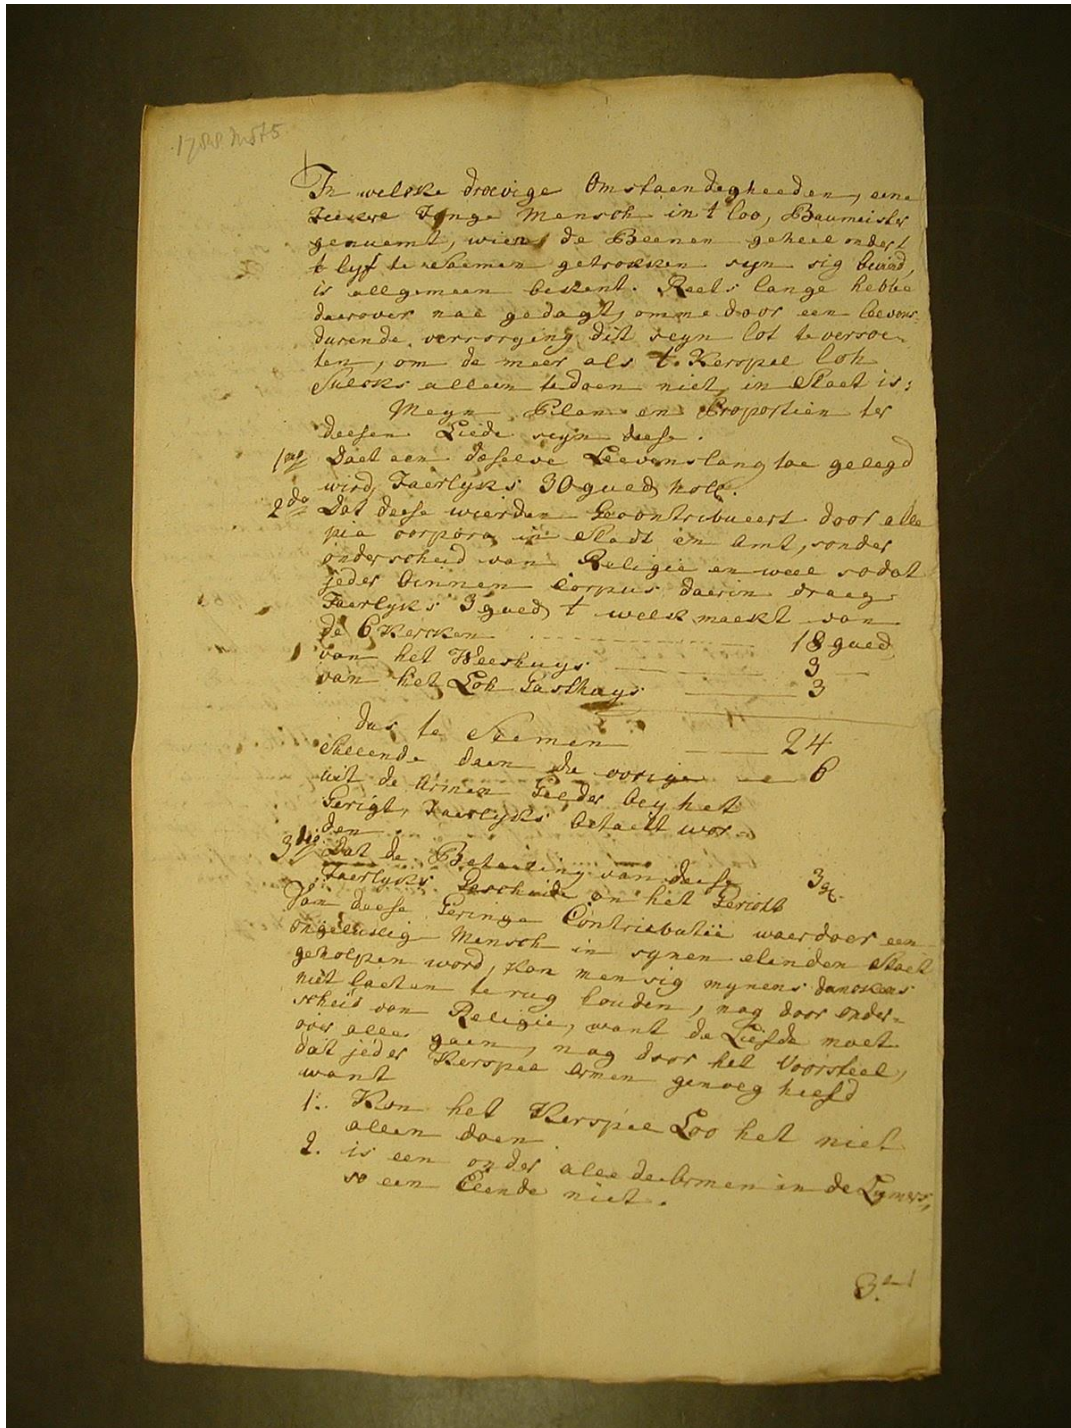 1788 Mst 5
In welcke droevige Omstaendegheeden, eene
Seekre Jonge Mensch in t Loo, Baumeister
genuemt, wien de Beenen geheel ondert
t lyf te Saemen getrocken syn sig bevind,
is allgemeen bekent. Reets lange hebbe
daerover nae gedagt, omme door een leevens-
durende verrsorging dit seyn lot te versoe-
ten, om de meer als t Kerspel Loh
Sulcks alleen te doen niet in Staet is:
Meyn Plan en Proportien ter
deesen Liede seyn deese.
1mo Daet een deselve Leevenslang toe gelegd
wird, Jaerlyks 30 guld. holl.
2do Dat deese wierden Gecontribueert door alle
pia corpora in Stadt en Amt, sonder
onderscheid van Religie en weel sodat
jeder binnen Corpus daerin draeg
Jaerlyks 3 guld, t welk maekt van
de 6 Kercken 18 guld
van het Weeshuys 3
van het Loh Gasthuys 3
dus te Saemen 24
Sullende daen de overige 6
uit de Armen Gelder bey het
Gerigt, Jaerlyks betaelt wor-
den
3tio Dat de Betaeling van deese 3 gl.
Jaerlyks Gescheide an het Gericht
Van deese Geringe Contributie waerdoer een
ongeluckeg Mensch in synen elenden Staet
geholpen word, kan men sig mynens danckens
niet laeten terug houden, nog door onder-
scheid van Religie, want de Liefde moet
over alles gaen, nog door het Voorsteel,
dat jeder Kerspel Armen genoeg heefd
want
1. Kan het Kerspel Loo het niet
alleen doen
2. is een onder alle de Armen in de Lymers,
so een Elende niet.
3.